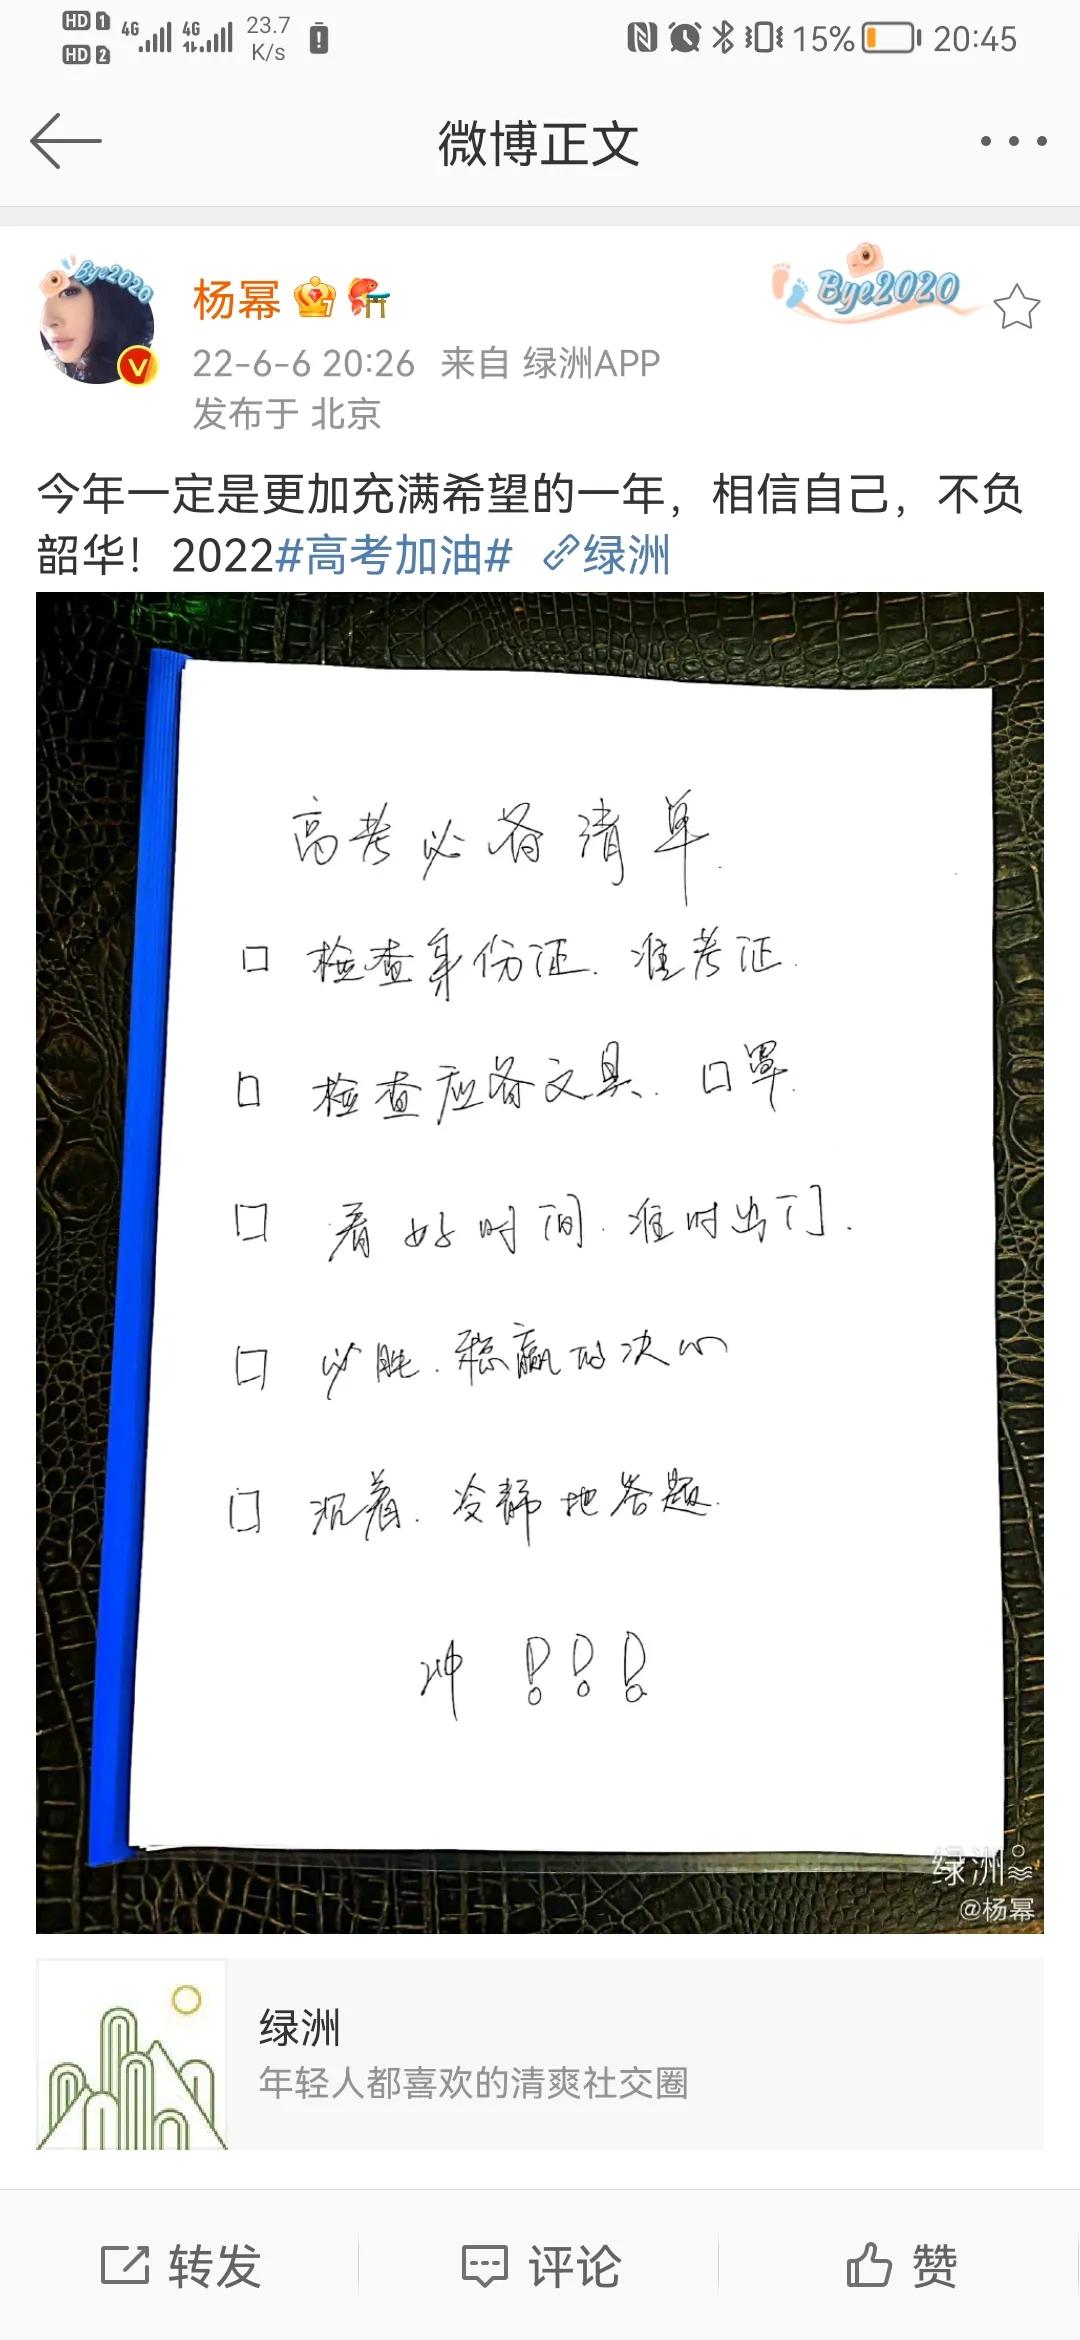 HD 1 4G 4G 23.7 K/s 15% 20:45
HD 2
微博正文
Bye2020
杨幂
Bye2020
22-6-6 20:26 来自 绿洲APP
发布于 北京
今年一定是更加充满希望的一年，相信自己，不负
韶华！2022#高考加油# 绿洲
高考必备清单.
检查身份证.准考证.
检查应备文具.口罩.
看好时间.准时出门.
必胜.稳赢的决心
沉着.冷静地答题.
冲 !!!
绿洲
@杨幂
绿洲
年轻人都喜欢的清爽社交圈
转发 评论 赞